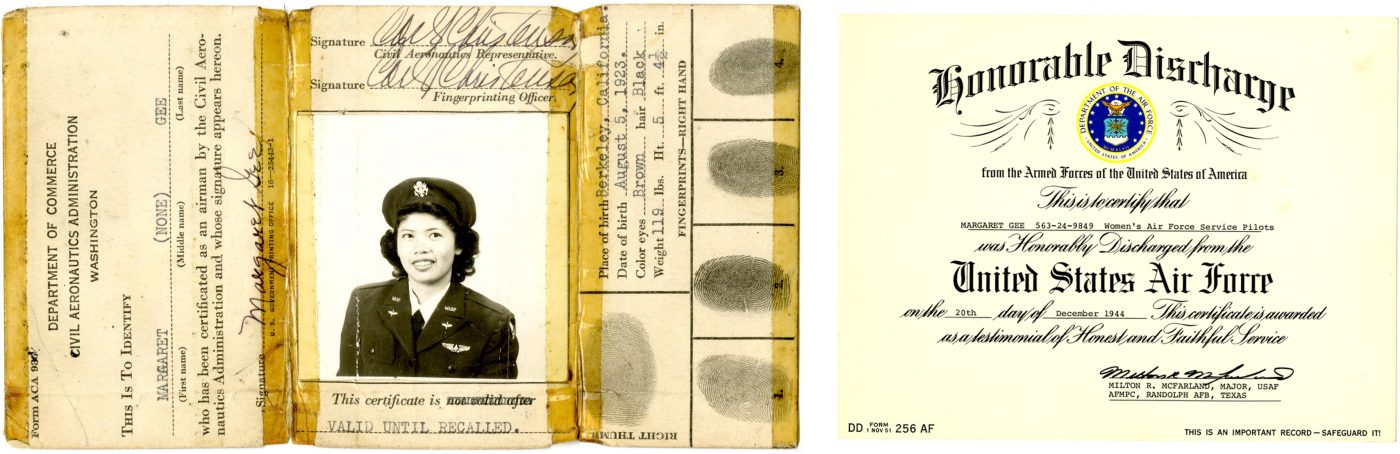 Form ACA
DEPARTMENT OF COMMERCE
CIVIL AERONAUTICS ADMINISTRATION
WASHINGTON
THIS IS TO IDENTIFY
MARGARET (NONE) GEE
(First name) (Middle name) (Last name)
who has been certificated as an airman by the Civil Aero-
nautics Administration and whose signature appears hereon.
Signature Margaret Gee
U. S. GOVERNMENT PRINTING OFFICE 16-25443-1
Signature
Civil Aeronautics Representative.
Signature
Fingerprinting Officer.
This certificate is not valid after
VALID UNTIL RECALLED.
Place of birth Berkeley, California.
Date of birth August 5, 1923.
Color eyes Brown hair Black
Weight 119 lbs. Ht. 5 ft. 4½ in.
FINGERPRINTS—RIGHT HAND
4.
3.
2.
1.
RIGHT THUMB
Honorable Discharge
DEPARTMENT OF THE AIR FORCE
MCMXLVII
UNITED STATES OF AMERICA
from the Armed Forces of the United States of America
This is to certify that
MARGARET GEE 563-24-9849 Women's Air Force Service Pilots
was Honorably Discharged from the
United States Air Force
on the 20th day of December 1944 This certificate is awarded
as a testimonial of Honest and Faithful Service
MILTON R. MCFARLAND, MAJOR, USAF
AFMPC, RANDOLPH AFB, TEXAS
DD FORM 1 NOV 51 256 AF
THIS IS AN IMPORTANT RECORD — SAFEGUARD IT!